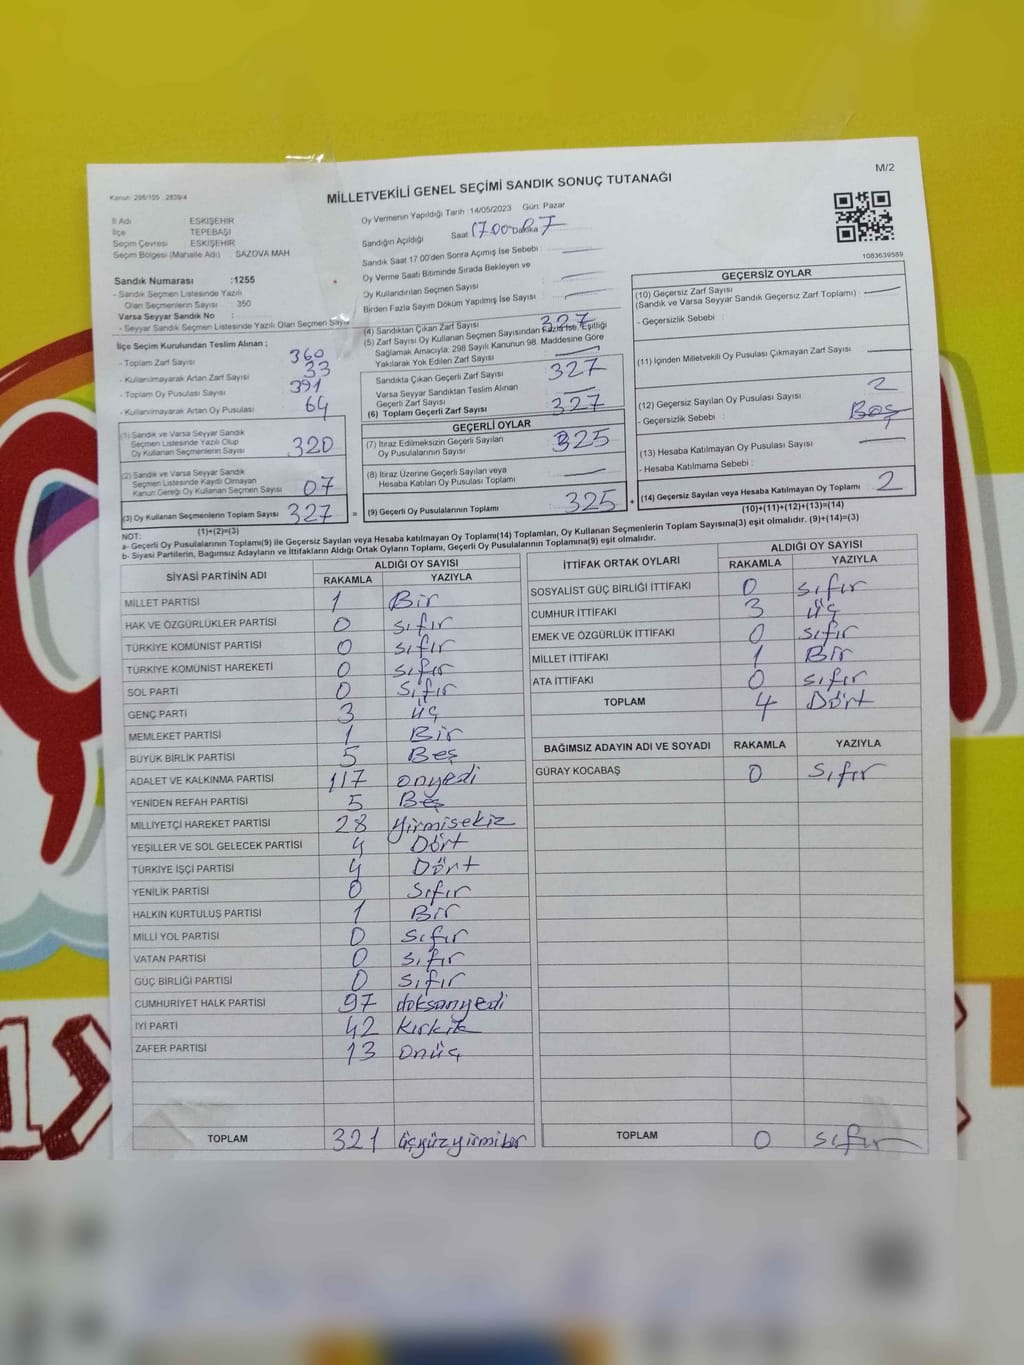 M/2
Kanun: 298/105 : 2839/4
MİLLETVEKİLİ GENEL SEÇİMİ SANDIK SONUÇ TUTANAĞI
İl Adı : ESKİŞEHİR
İlçe : TEPEBAŞI
Seçim Çevresi : ESKİŞEHİR
Seçim Bölgesi (Mahalle Adı) SAZOVA MAH
Oy Vermenin Yapıldığı Tarih :14/05/2023 Gün: Pazar
Sandığın Açıldığı Saat 17.00 Dakika 07
Sandık Saat 17.00'den Sonra Açımış İse Sebebi :
Oy Verme Saati Bitiminde Sırada Bekleyen ve
Oy Kullandırılan Seçmen Sayısı :
Birden Fazla Sayım Döküm Yapılmış İse Sayısı :
1083639589
Sandık Numarası :1255
- Sandık Seçmen Listesinde Yazılı
Olan Seçmenlerin Sayısı : 350
Varsa Seyyar Sandık No :
- Seyyar Sandık Seçmen Listesinde Yazılı Olan Seçmen Sayıs
İlçe Seçim Kurulundan Teslim Alınan ;
- Toplam Zarf Sayısı : 360
- Kullanılmayarak Artan Zarf Sayısı : 33
- Toplam Oy Pusulası Sayısı : 391
- Kullanılmayarak Artan Oy Pusulası : 64
(1) Sandık ve Varsa Seyyar Sandık
Seçmen Listesinde Yazılı Olup
Oy Kullanan Seçmenlerin Sayısı 320
(2) Sandık ve Varsa Seyyar Sandık
Seçmen Listesinde Kayıtlı Olmayan
Kanun Gereği Oy Kullanan Seçmen Sayısı 07
(3) Oy Kullanan Seçmenlerin Toplam Sayısı 327 =
(1)+(2)=(3)
(4) Sandıktan Çıkan Zarf Sayısı 327
(5) Zarf Sayısı Oy Kullanan Seçmen Sayısından Fazla İse, Eşitliği
Sağlamak Amacıyla; 298 Sayılı Kanunun 98. Maddesine Göre
Yakılarak Yok Edilen Zarf Sayısı
Sandıkta Çıkan Geçerli Zarf Sayısı 327
Varsa Seyyar Sandıktan Teslim Alınan
Geçerli Zarf Sayısı
(6) Toplam Geçerli Zarf Sayısı 327
GEÇERLİ OYLAR
(7) İtiraz Edilmeksizin Geçerli Sayılan
Oy Pusulalarının Sayısı 325
(8) İtiraz Üzerine Geçerli Sayılan veya
Hesaba Katılan Oy Pusulası Toplamı
(9) Geçerli Oy Pusulalarının Toplamı 325 +
GEÇERSİZ OYLAR
(10) Geçersiz Zarf Sayısı
(Sandık ve Varsa Seyyar Sandık Geçersiz Zarf Toplamı)
- Geçersizlik Sebebi :
(11) İçinden Milletvekili Oy Pusulası Çıkmayan Zarf Sayısı
(12) Geçersiz Sayılan Oy Pusulası Sayısı 2
- Geçersizlik Sebebi : Boş
(13) Hesaba Katılmayan Oy Pusulası Sayısı
- Hesaba Katılmama Sebebi :
(14) Geçersiz Sayılan veya Hesaba Katılmayan Oy Toplamı 2
(10)+(11)+(12)+(13)=(14)
NOT:
a- Geçerli Oy Pusulalarının Toplamı(9) ile Geçersiz Sayılan veya Hesaba katılmayan Oy Toplamı(14) Toplamları, Oy Kullanan Seçmenlerin Toplam Sayısına(3) eşit olmalıdır. (9)+(14)=(3)
b- Siyasi Partilerin, Bağımsız Adayların ve İttifakların Aldığı Ortak Oyların Toplamı, Geçerli Oy Pusulalarının Toplamına(9) eşit olmalıdır.
SİYASİ PARTİNİN ADI ALDIĞI OY SAYISI
RAKAMLA YAZIYLA
MİLLET PARTİSİ 1 Bir
HAK VE ÖZGÜRLÜKLER PARTİSİ 0 sıfır
TÜRKİYE KOMÜNİST PARTİSİ 0 sıfır
TÜRKİYE KOMÜNİST HAREKETİ 0 sıfır
SOL PARTİ 0 sıfır
GENÇ PARTİ 3 üç
MEMLEKET PARTİSİ 1 Bir
BÜYÜK BİRLİK PARTİSİ 5 Beş
ADALET VE KALKINMA PARTİSİ 117 onyedi
YENİDEN REFAH PARTİSİ 5 Beş
MİLLİYETÇİ HAREKET PARTİSİ 28 yirmisekiz
YEŞİLLER VE SOL GELECEK PARTİSİ 4 Dört
TÜRKİYE İŞÇİ PARTİSİ 4 Dört
YENİLİK PARTİSİ 0 Sıfır
HALKIN KURTULUŞ PARTİSİ 1 Bir
MİLLİ YOL PARTİSİ 0 sıfır
VATAN PARTİSİ 0 sıfır
GÜÇ BİRLİĞİ PARTİSİ 0 sıfır
CUMHURİYET HALK PARTİSİ 97 doksanyedi
İYİ PARTİ 42 kırkiki
ZAFER PARTİSİ 13 onüç
TOPLAM 321 üçyüzyirmibir
İTTİFAK ORTAK OYLARI ALDIĞI OY SAYISI
RAKAMLA YAZIYLA
SOSYALİST GÜÇ BİRLİĞİ İTTİFAKI 0 sıfır
CUMHUR İTTİFAKI 3 üç
EMEK VE ÖZGÜRLÜK İTTİFAKI 0 sıfır
MİLLET İTTİFAKI 1 Bir
ATA İTTİFAKI 0 sıfır
TOPLAM 4 Dört
BAĞIMSIZ ADAYIN ADI VE SOYADI RAKAMLA YAZIYLA
GÜRAY KOCABAŞ 0 sıfır
TOPLAM 0 sıfır